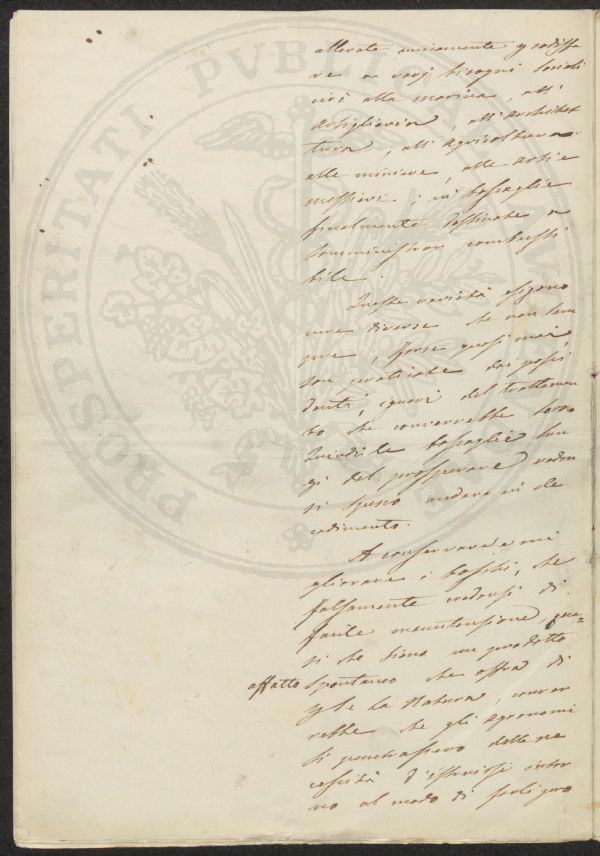 allevate unicamente p sodisfa
re a varj bisogni sociali
cioè alla marina, all'
Artiglieria, all'architet
tura, all'agricoltura
alle miniere, alle arti e
mestieri; in boscaglie
finalmente destinate a
somministrar combusti
bile.
Queste varietà esigono
cure diverse che non sem
pre, forse quasi mai
son praticate dai possi
denti, ignari del trattamen
to che converrebbe loro.
Quindi le boscaglie lun
gi del prosperare vedon
si spesso andare in de
cadimento.
A conservare e mi
gliorare i boschi, che
falsamente credonsi di
facile manutensione, qua=
si che sieno un prodotto
affatto spontaneo che offra di
p se la Natura, conver
rebbe che gli agronomi
si penetrassero della ne
cessità d'istruirsi intor
no al modo di farli pro
PROSPERITATI PVBLICAE AVGENDAE